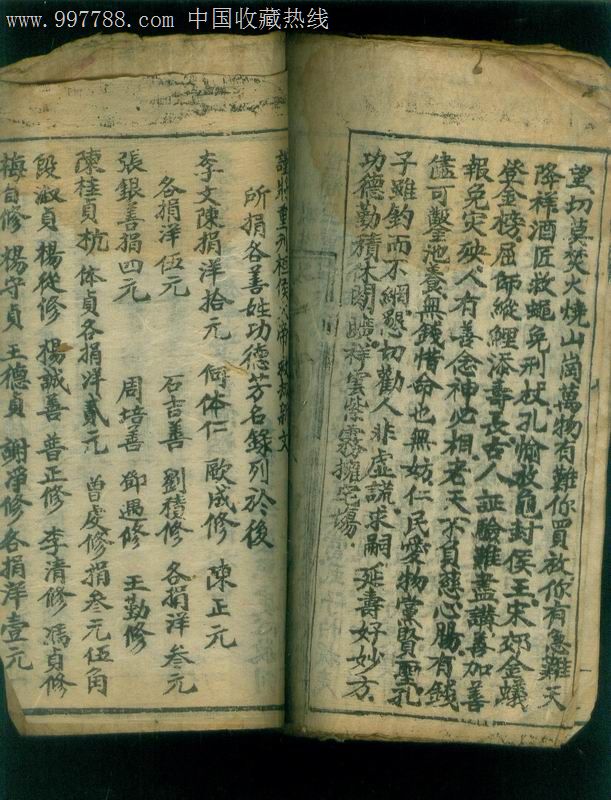 www.997788.com 中国收藏热线
望切莫焚火燒山崗萬物有難你買放你有急難天
降祥酒匠救蠅免刑杖孔愉放龜封侯王宋郊金蟻
登金榜屈師縱鯉添壽長古人証驗難盡講善加善
報免灾殃人有善念神必相老天不負慈心腸有錢
儘可鑿池養無錢惜命也無妨仁民愛物黨賢聖孔
子雖釣而不綱懇切勸人非虛謊求嗣延壽好妙方
功德勤積休間斷祥雲紫霧擁宅場
謹將重刊桓侯帝文
所捐各善姓功德芳名錄列於後
李文陳捐洋拾元 何体仁 歐成修 陳正元
各捐洋伍元 石吉善 劉積修 各捐洋叁元
張銀善捐四元 周培善 鄧遇修 王勤修
陳桂貞 体貞各捐洋貳元 曾虔修捐叁元伍角
段淑貞 楊從修 楊誠善 普正修 李清修 馮貞修
梅自修 楊守貞 王德貞 謝淨修各捐洋壹元